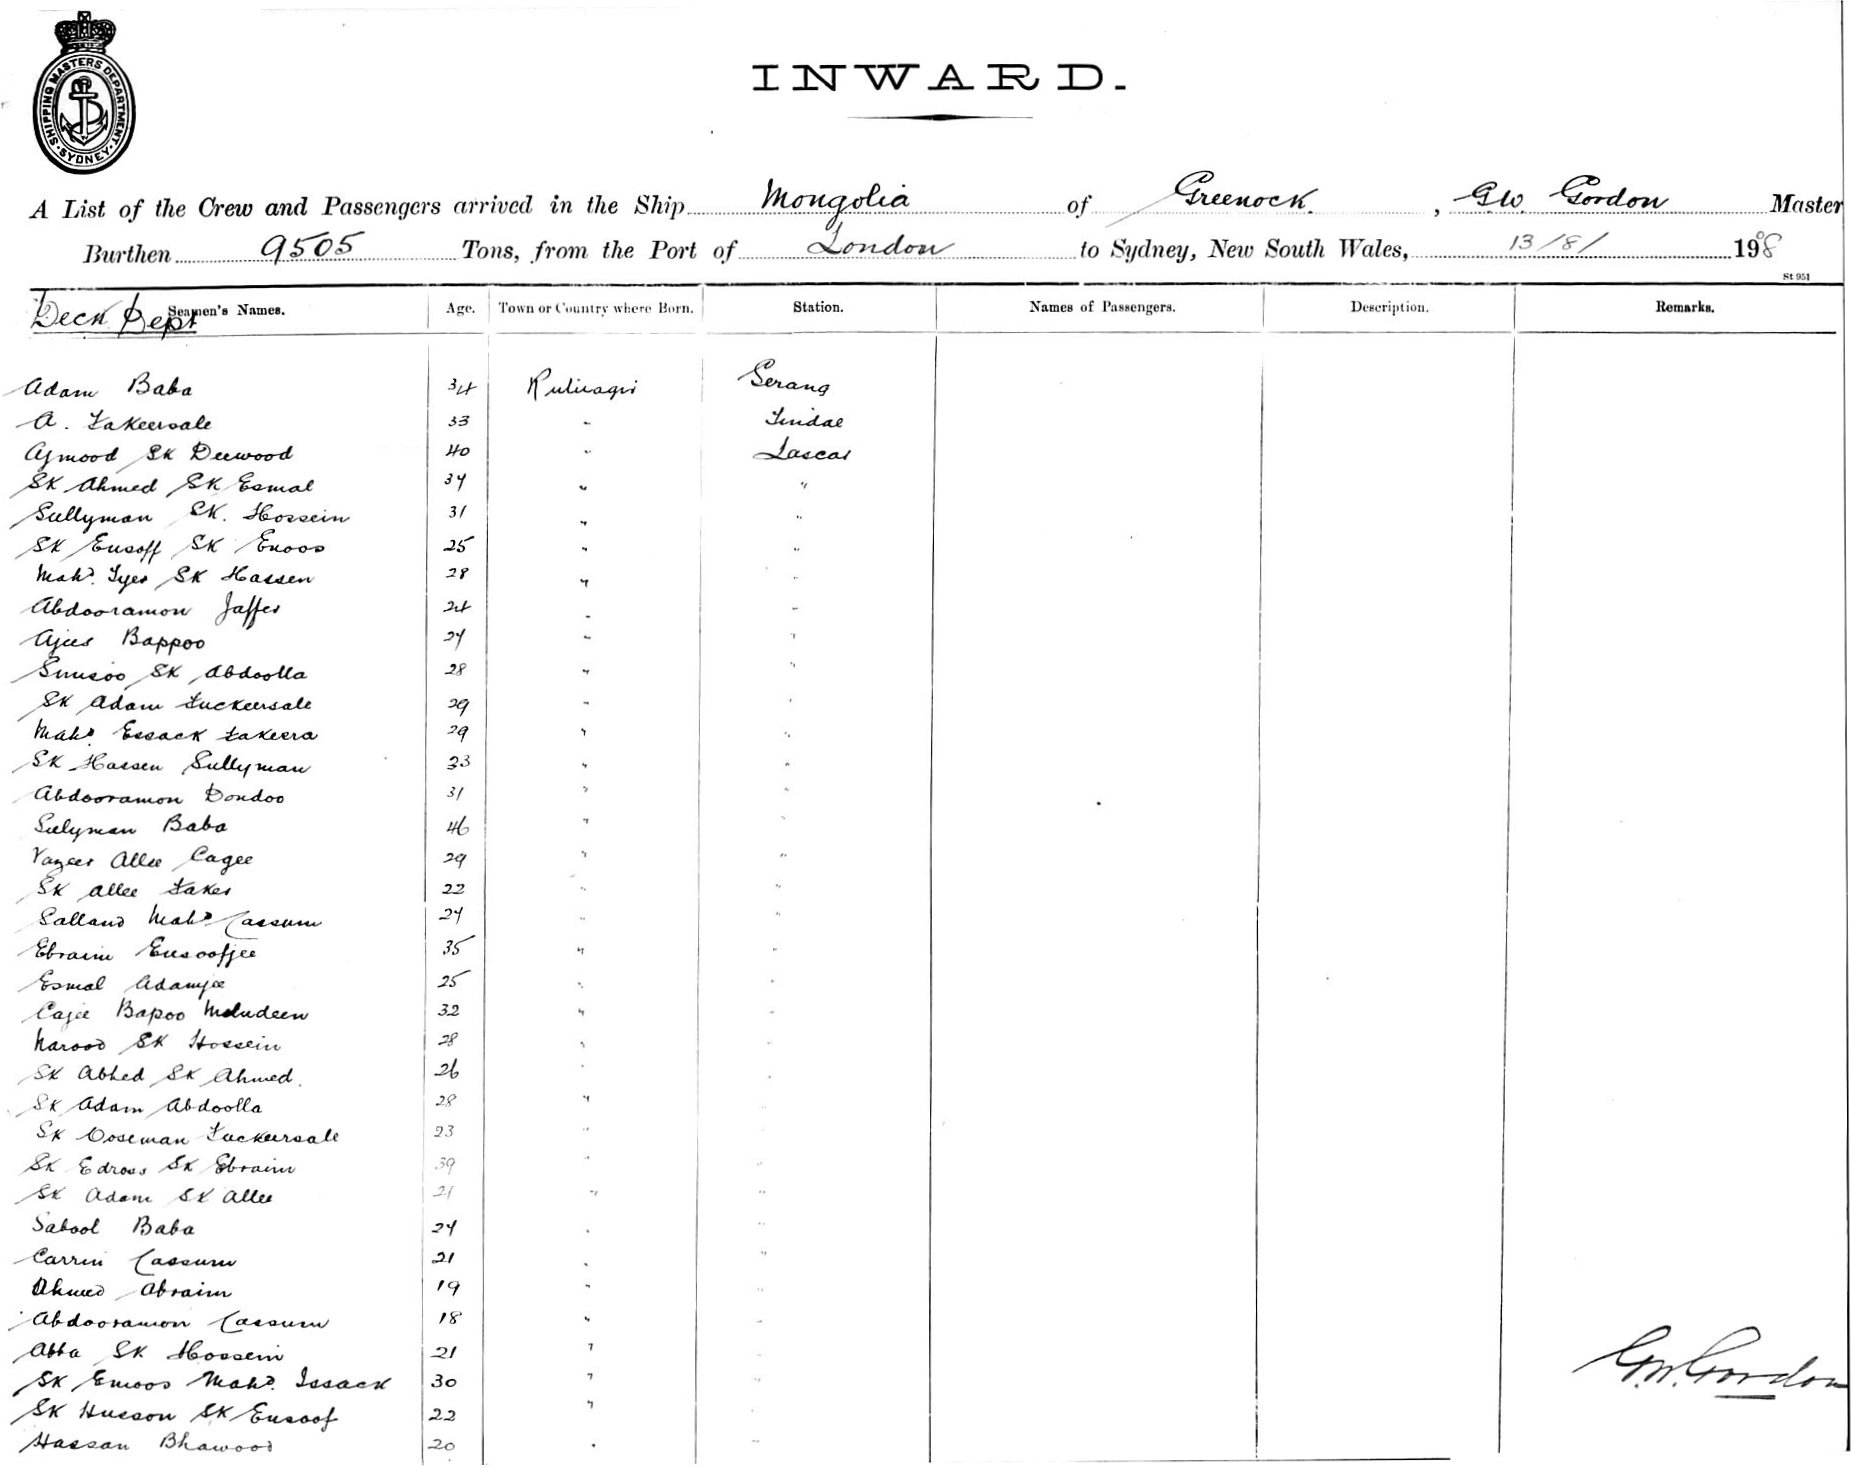 SHIPPING MASTERS DEPARTMENT
SYDNEY
INWARD.
A List of the Crew and Passengers arrived in the Ship Mongolia of Greenock, G.W. Gordon Master
Burthen 9505 Tons, from the Port of London to Sydney, New South Wales, 13/8/ 1908
St 951
Deck Dept Seamen's Names. Age. Town or Country where Born. Station. Names of Passengers. Description. Remarks.
Adam Baba 34 Serang
A. Fakeersale 33 " Tindal
Ajmood SK Deewood 40 " Lascar
SK Ahmed SK Esmal 34 " "
Sullyman SK. Hossein 31 " "
SK Eusoff SK Enoos 25 " "
Mahd. Tyer SK Hassen 28 " "
Abdooramon Jaffer 24 " "
Ajees Bappoo 24 " "
SK Abdoolla 28 " "
SK Adam Fuckeersale 29 " "
Mahd. Essack Fakeera 29 " "
SK Hassen Sullyman 33 " "
Abdooramon Dondoo 31 " "
Sulyman Baba 46 "
Allee Cagee 29 " "
SK Allee Faker 22 " "
Mahd Cassum 24 " "
Ebraim Eusoofjee 35 " "
Esmal Adamjee 25 " "
Cajee Bapoo Moludeen 32 " "
Narood SK Hossein 28 " "
SK Abhed SK Ahmed. 26 " "
SK Adam Abdoolla 28 "
SK Ooseman Fuckeersale 23 "
SK Edross SK Ebraim 39 " "
SK Adam SK Allee 21 " "
Sabool Baba 24 " "
Carrim Cassum 21 " "
Ahmed Abraim 19 " "
Abdooramon Cassum 18 " "
Abba SK Hossein 21 " "
SK Emoos Mahd. Issack 30 " "
SK Husson SK Eusoof 22 " "
Hassan Bhawood 20 " "
G.W. Gordon